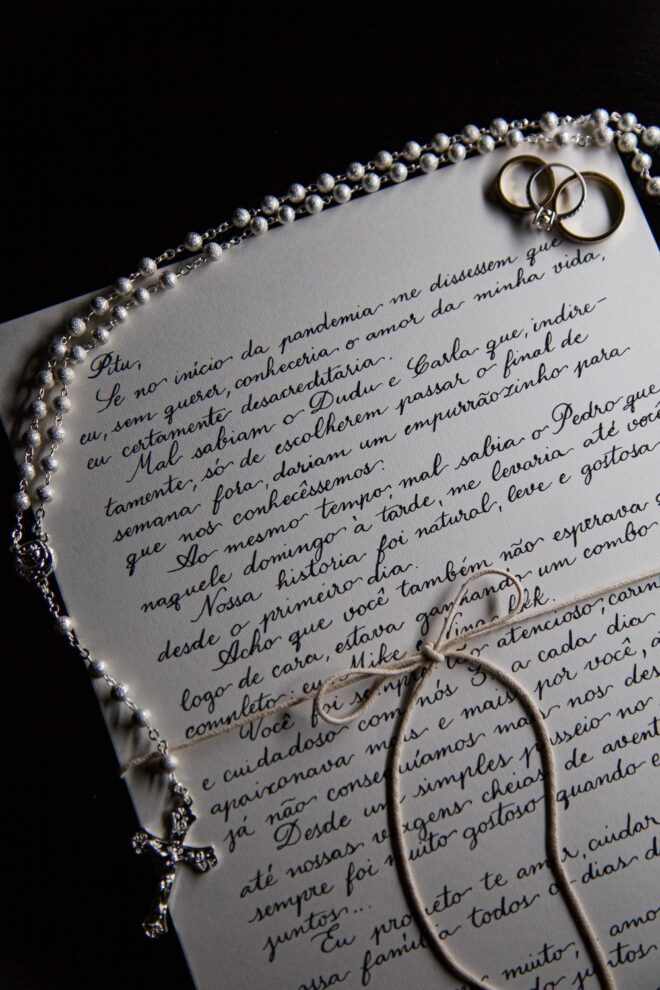 Pitu,
Se no início da pandemia me dissessem que
eu, sem querer, conheceria o amor da minha vida,
eu certamente desacreditaria.
Mal sabiam o Dudu e Carla que, indire-
tamente, só de escolherem passar o final de
semana fora, dariam um empurrãozinho para
que nos conhecêssemos.
Ao mesmo tempo, mal sabia o Pedro que
naquele domingo à tarde, me levaria até você
Nossa história foi natural, leve e gostosa
desde o primeiro dia.
Acho que você também não esperava
logo de cara, estava ganhando um combo
completo: eu, Mike
Você foi sempre tão atencioso,
e cuidadoso com nós 3 a cada dia
apaixonava mais e mais por você,
já não conseguíamos mais nos
Desde um simples passeio no
até nossas viagens cheias de
sempre foi muito gostoso quando
juntos...
Eu prometo te amar, cuidar
família todos os dias
muito,
juntos